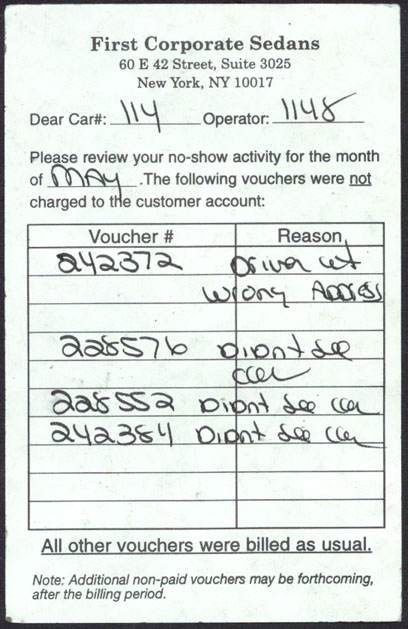 First Corporate Sedans
60 E 42 Street, Suite 3025
New York, NY 10017
Dear Car#: 114 Operator: 1148
Please review your no-show activity for the month
of MAy .The following vouchers were not
charged to the customer account:
Voucher # Reason
242372 Driver at
wrong Address
228576 Didnt see
car
228552 Didnt see car
242384 Didnt see car
All other vouchers were billed as usual.
Note: Additional non-paid vouchers may be forthcoming,
after the billing period.